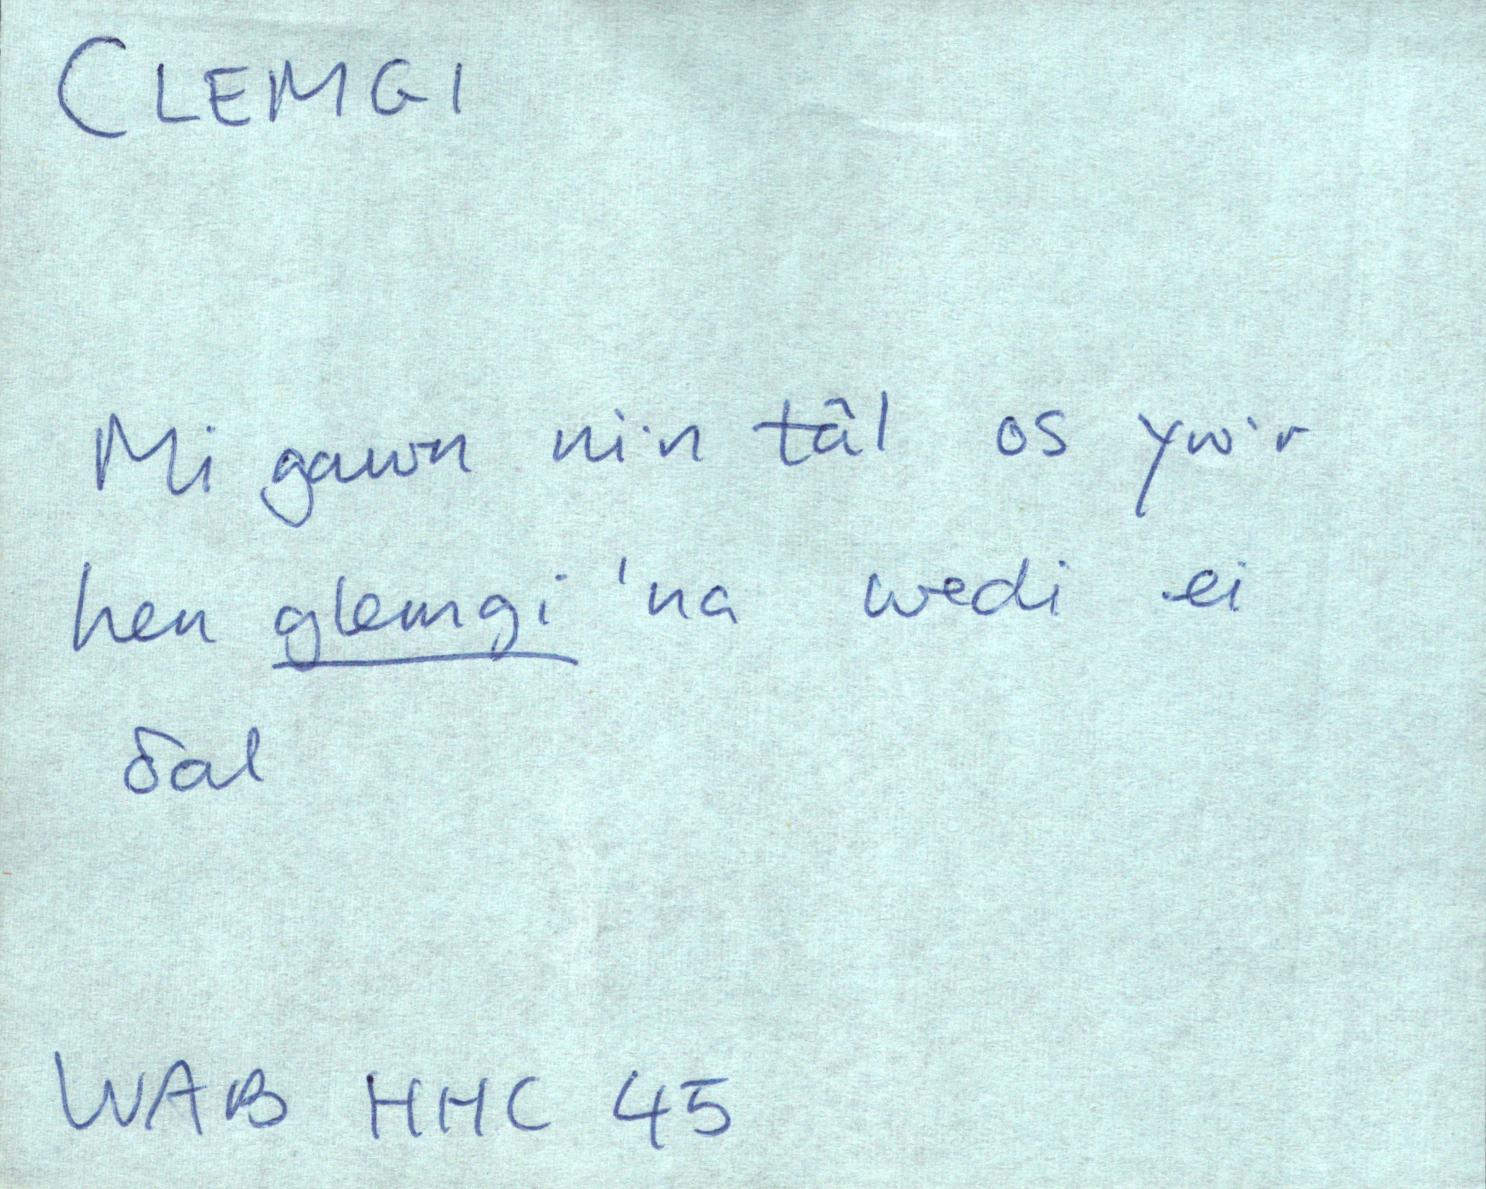 CLEMGI
Mi gawn ni'n tâl os yw'r
hen glemgi 'na wedi ei
δal
WAB HHC 45